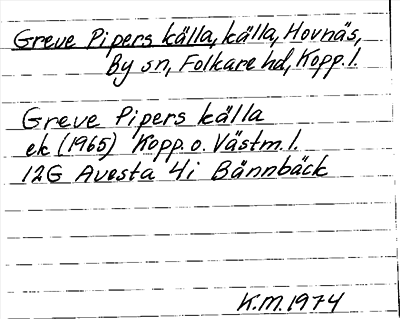 Greve Pipers källa, källa, Hovnäs,
By sn, Folkare hd, Kopp. l.
Greve Pipers källa
ek (1965) Kopp. o. Västm. l.
12G Avesta 4i Bännbäck
K.M. 1974